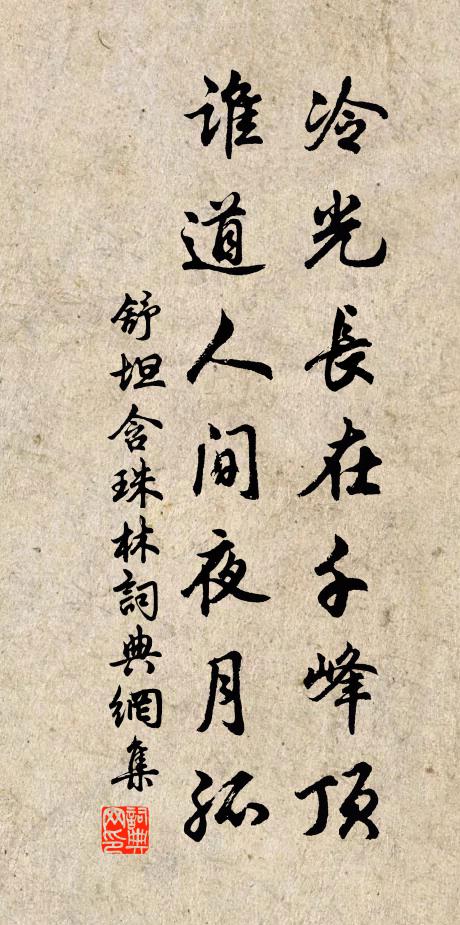 冷光長在千峰頂
誰道人間夜月孤
舒坦含珠林詞典網集
詞典網印